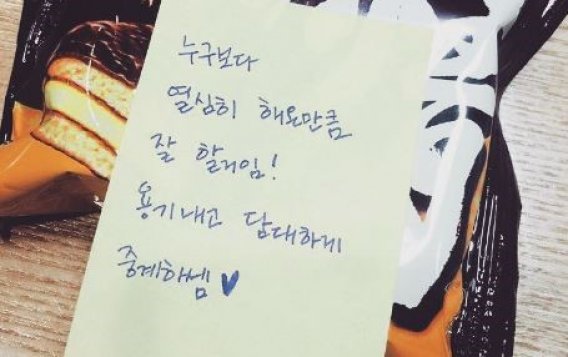 누구보다
열심히 해온만큼
잘 할거임!
용기내고 담대하게
중계하셈 ♥